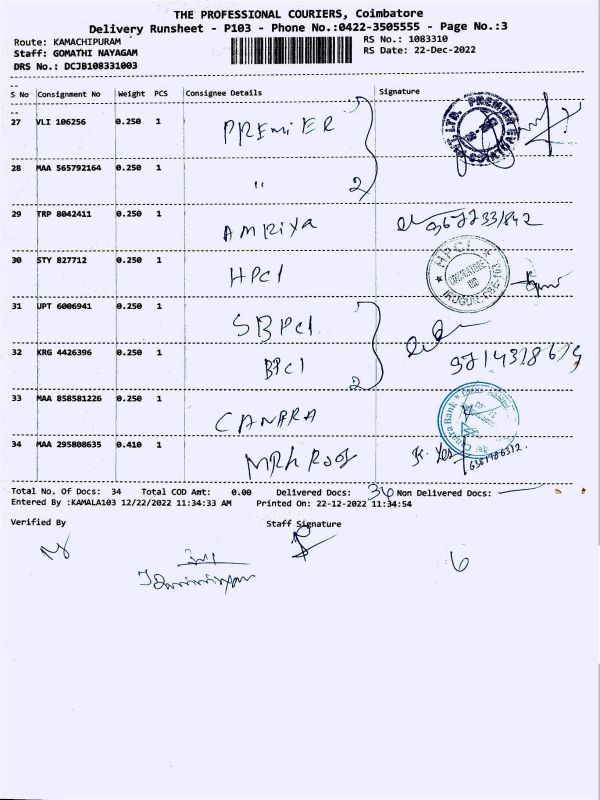 THE PROFESSIONAL COURIERS, Coimbatore
Delivery Runsheet - P103 - Phone No.:0422-3505555 - Page No.:3
Route: KAMACHIPURAM RS No.: 1083310
Staff: GOMATHI NAYAGAM RS Date: 22-Dec-2022
DRS No.: DCJB108331003
S No Consignment No Weight PCS Consignee Details Signature
27 VLI 106256 0.250 1 PREMiER
28 MAA 565792164 0.250 1 " 2
29 TRP 8042411 0.250 1 AMRiYa
30 STY 827712 0.250 1 HPCl HPCL
31 UPT 6006941 0.250 1 SBPCl
32 KRG 4426396 0.250 1 BPCl 2
33 MAA 858581226 0.250 1 CANARA Canara Bank
34 MAA 295808635 0.410 1
Total No. Of Docs: 34 Total COD Amt: 0.00 Delivered Docs: 34 Non Delivered Docs:
Entered By :KAMALA103 12/22/2022 11:34:33 AM Printed On: 22-12-2022 11:34:54
Verified By Staff Signature
6